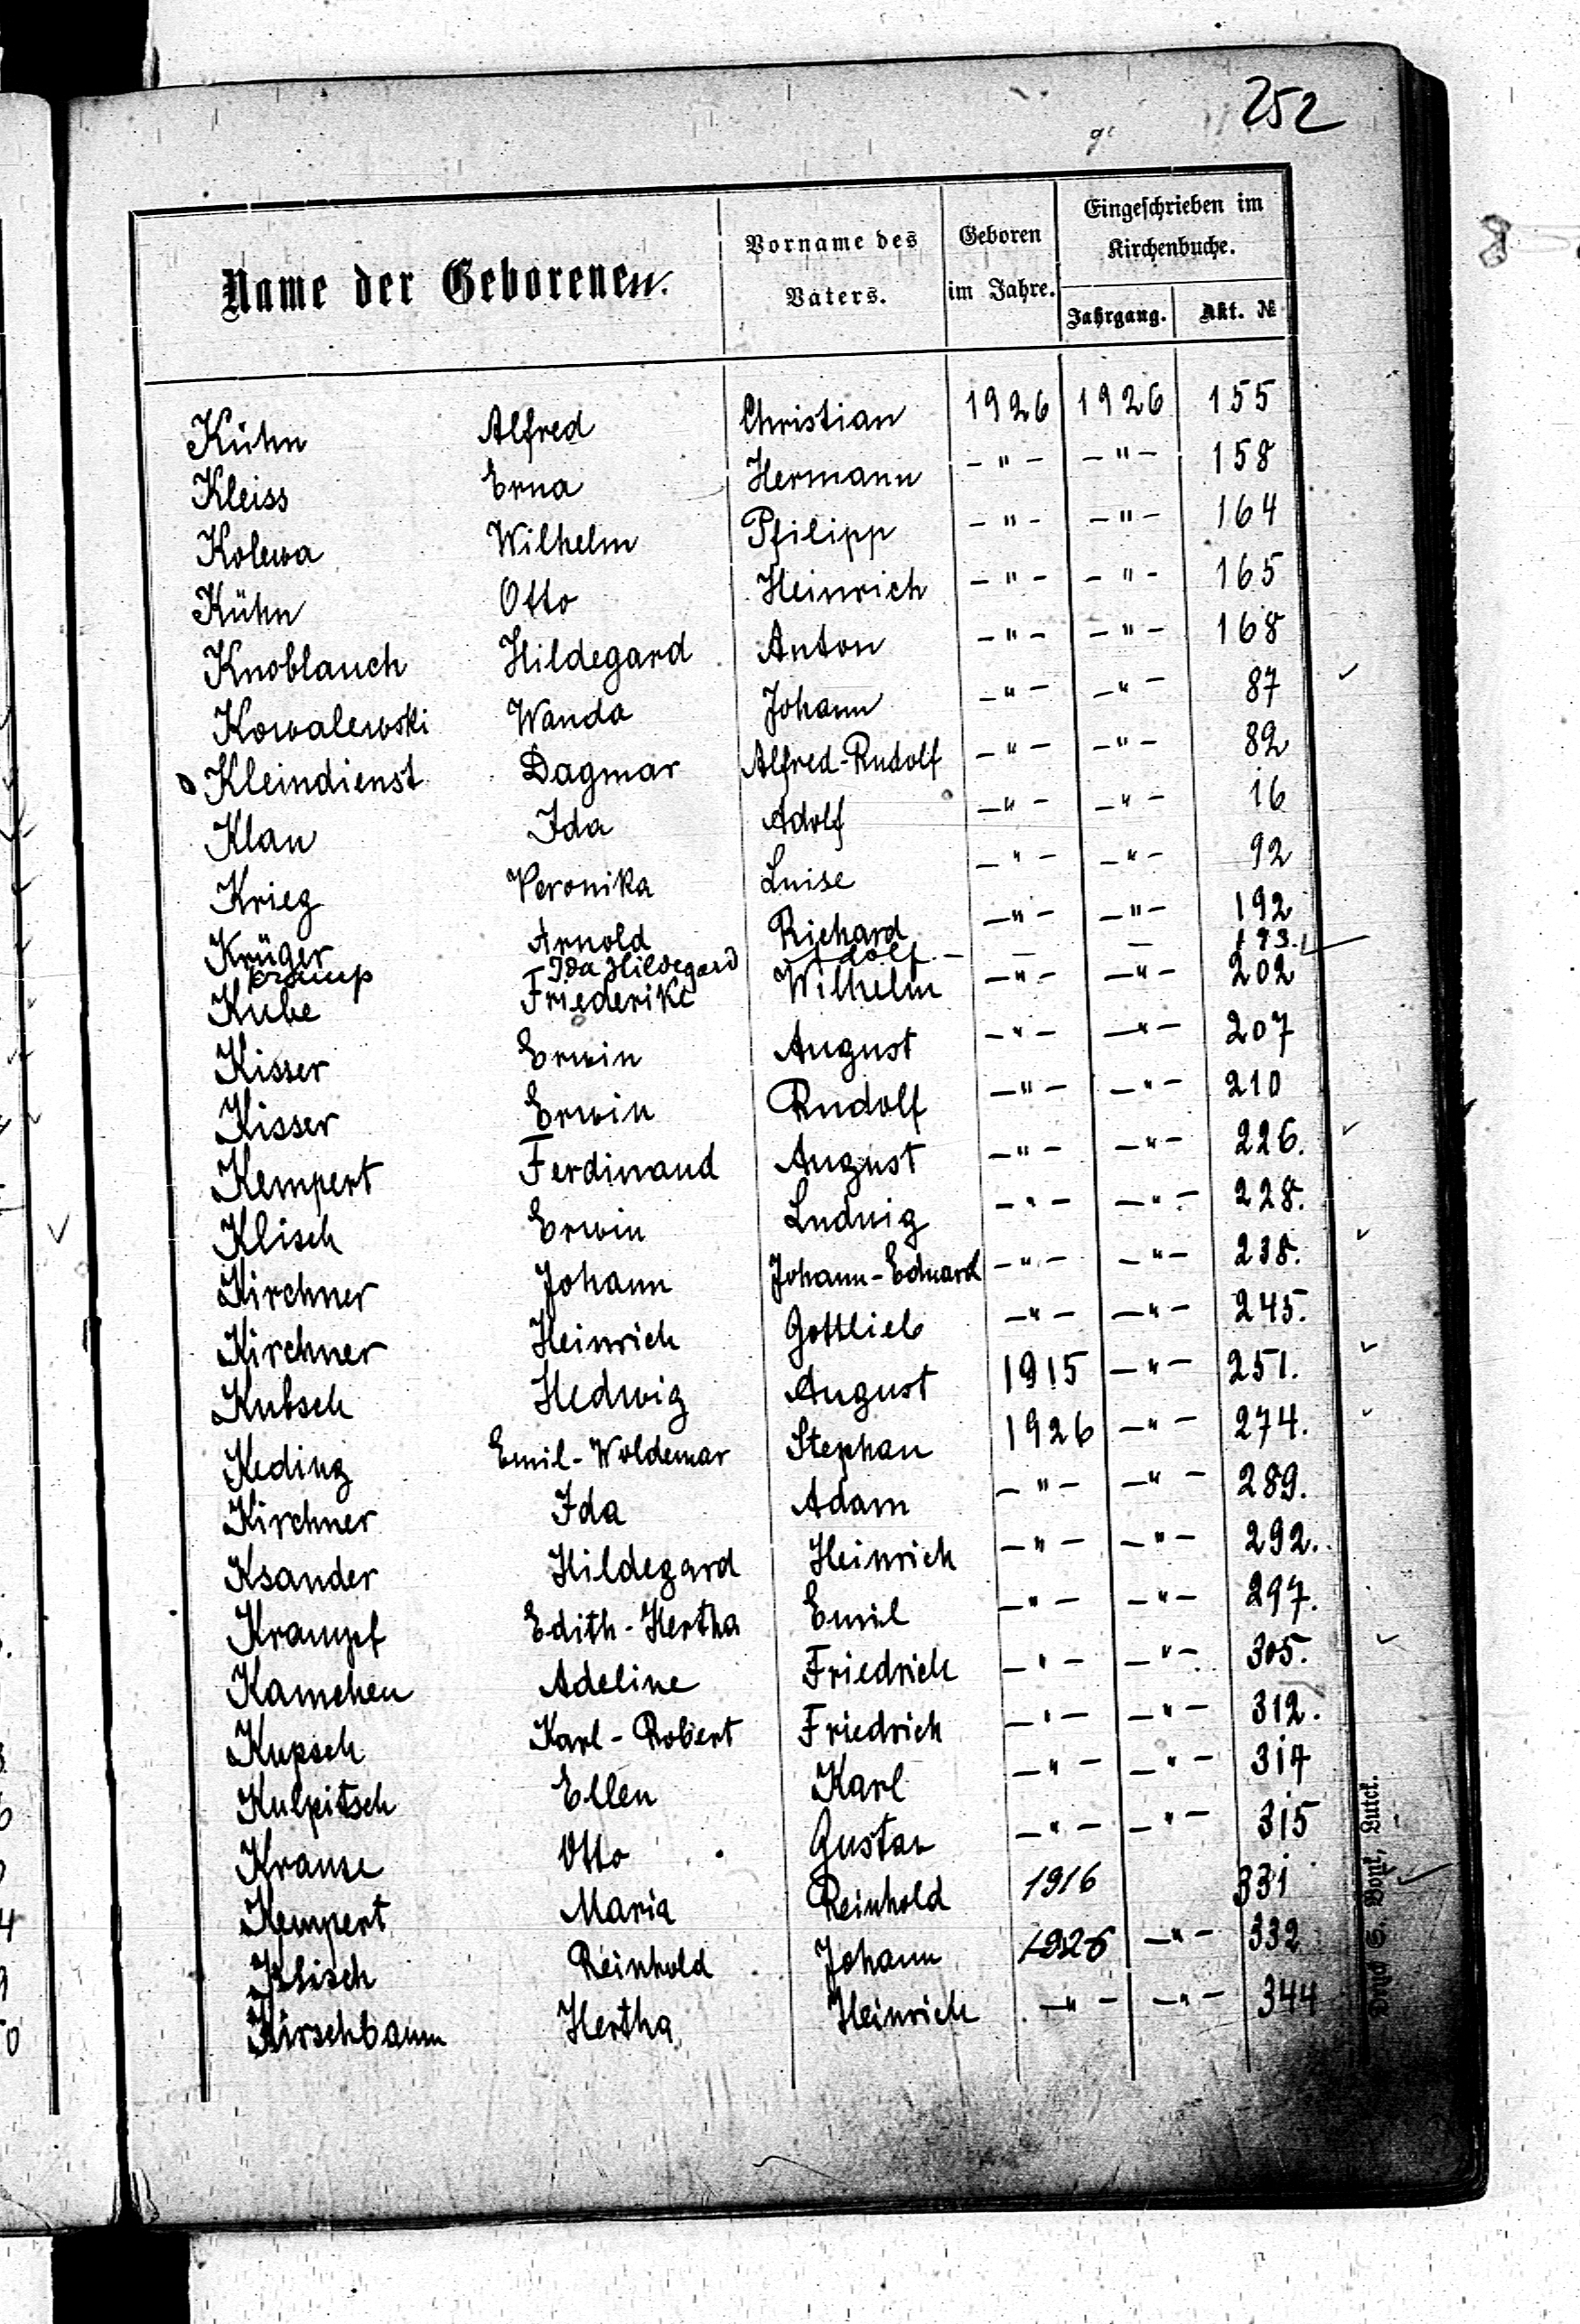 252
Name der Geborenen.
Vorname des Vaters.
Geboren im Jahre.
Eingeschrieben im Kirchenbuche.
Jahrgang. Akt. №
Kühn Alfred Christian 1926 1926 155
Kleiss Erna Hermann -"- -"- 158
Kolewa Wilhelm Philipp -"- -"- 164
Kühn Otto Heinrich -"- -"- 165
Knoblauch Hildegard Anton -"- -"- 168
Kowalewski Wanda Johann -"- -"- 87
Kleindienst Dagmar Alfred-Rudolf -"- -"- 82
Klan Ida Adolf -"- -"- 16
Krieg Veronika Luise -"- -"- 92
Krüger Arnold Richard -"- -"- 192
Kramp Ida Hildegard Adolf - - - 193.
Kube Friederike Wilhelm -"- -"- 202
Kisser Erwin August -"- -"- 207
Kisser Erwin Rudolf -"- -"- 210
Kempert Ferdinand August -"- -"- 226.
Klisch Erwin Ludwig -"- -"- 228.
Kirchner Johann Johann-Eduard -"- -"- 238.
Kirchner Heinrich Gottlieb -"- -"- 245.
Kubsch Hedwig August 1915 -"- 251.
Keding Emil-Woldemar Stephan 1926 -"- 274.
Kirchner Ida Adam -"- -"- 289.
Ksander Hildegard Heinrich -"- -"- 292.
Krampf Edith-Hertha Emil -"- -"- 297.
Kamchen Adeline Friedrich -"- -"- 305.
Kupsch Karl-Robert Friedrich -"- -"- 312.
Kulpitsch Ellen Karl -"- -"- 314
Krause Otto Gustav -"- -"- 315
Kempert Maria Reinhold 1916 331
Klisch Reinhold Johann 1926 -"- 332
Kirschbaum Hertha Heinrich -"- -"- 344